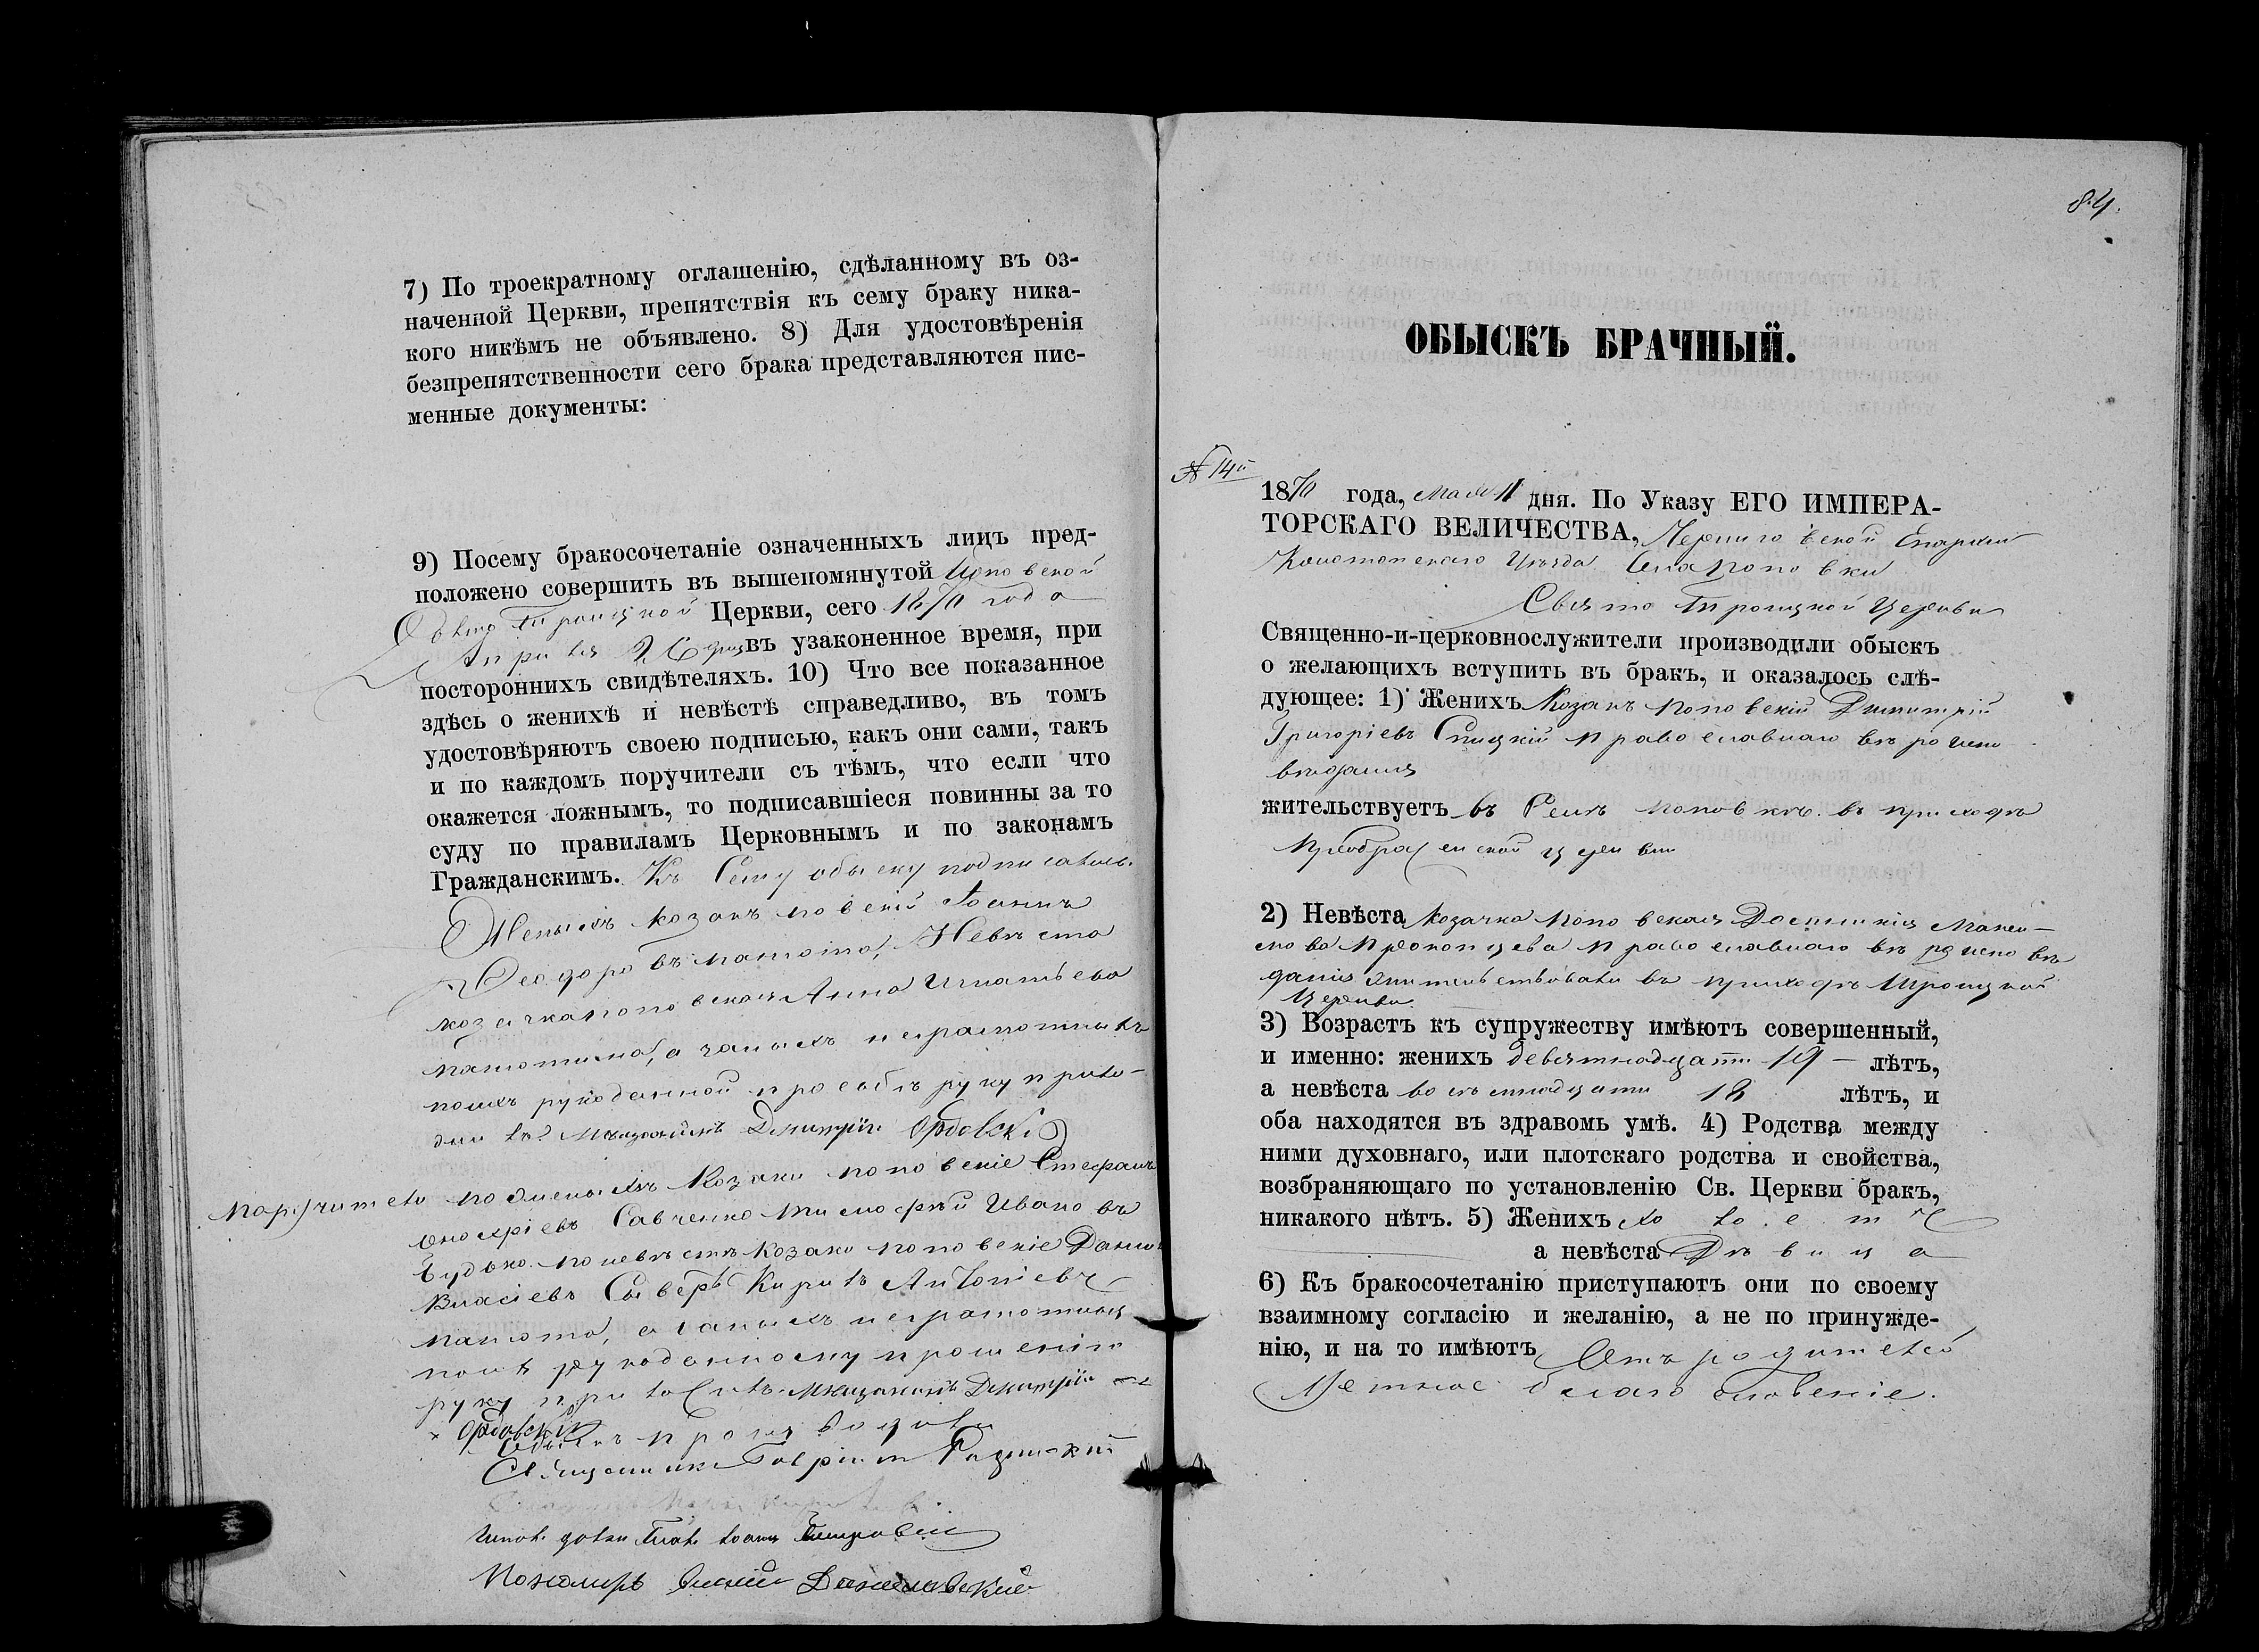 7) По троекратному оглашенію, сдѣланному въ оз-
наченной Церкви, препятствія къ сему браку ника-
кого никѣмъ не объявлено. 8) Для удостовѣренія
безпрепятственности сего брака представляются пис-
менные документы:
9) Посему бракосочетаніе означенныхъ лицъ пред-
положено совершить въ вышепомянутой Поповской
Свято Троицкой Церкви, сего 1870 года
Апреля 26 дня въ узаконенное время, при
постороннихъ свидѣтеляхъ. 10) Что все показанное
здѣсь о женихѣ и невѣстѣ справедливо, въ томъ
удостовѣряютъ своею подписью, какъ они сами, такъ
и по каждомъ поручители съ тѣмъ, что если что
окажется ложнымъ, то подписавшіеся повинны за то
суду по правиламъ Церковнымъ и по законамъ
Гражданскимъ. Къ Сему обыску подписались
Женихъ козакъ Іоаннъ
Феодоровъ Невѣста
козачка поповская Анна Игнатьева
а за нихъ неграмотныхъ
ручной прозьбѣ руку прило-
жилъ Мѣщанинъ Димитрій
Поручители по женихѣ Козаки поповскіе Стефанъ
Онофріевъ Савченко Тимофѣй Ивановъ
по невѣстѣ козаки поповскіе
Власіевъ Кирилъ Антоніевъ
а за нихъ неграмотныхъ
по ихъ рукоданному прошенію
руку приложилъ Мѣщанинъ Димитрій
Обыскъ производили
Священникъ Гавріилъ
Пономарь
84.
ОБЫСКЪ БРАЧНЫЙ.
№ 14й
1870 года, Мая 11 дня. По Указу ЕГО ИМПЕРА-
ТОРСКАГО ВЕЛИЧЕСТВА, Черниговской Епархіи
Конотопскаго Уѣзда Села Поповки
Свято Троицкой Церкви
Священно-и-церковнослужители производили обыскъ
о желающихъ вступить въ бракъ, и оказалось слѣ-
дующее: 1) Женихъ Козакъ поповскій Димитрій
Григоріевъ Спицкій православнаго вѣроиспо
вѣданія
жительствуетъ въ Селѣ поповкѣ въ приходѣ
Преображенской церкви
2) Невѣста козачка поповская Максі-
мова Прокопцева православнаго вѣроисповѣ
данія жительствовала въ приходѣ Троицкой
Церкви
3) Возрастъ къ супружеству имѣютъ совершенный,
и именно: женихъ девятнадцати 19 лѣтъ,
а невѣста восемнадцати 18 лѣтъ, и
оба находятся въ здравомъ умѣ. 4) Родства между
ними духовнаго, или плотскаго родства и свойства,
возбраняющаго по установленію Св. Церкви бракъ,
никакого нѣтъ. 5) Женихъ холостъ
а невѣста Дѣвица
6) Къ бракосочетанію приступаютъ они по своему
взаимному согласію и желанію, а не по принужде-
нію, и на то имѣютъ Отъ родителей
Устное благословеніе.